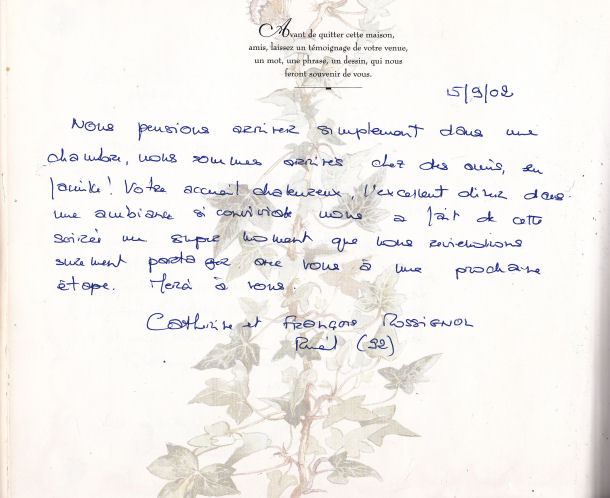 Avant de quitter cette maison,
amis, laissez un témoignage de votre venue,
un mot, une phrase, un dessin, qui nous
feront souvenir de vous.
15/9/02
Nous pensions arriver simplement dans une
chambre, nous sommes arrivés chez des amis, en
famille! Votre accueil chaleureux, l'excellent diner dans
une ambiance si conviviale nous a fait de cette
soirée un super moment que nous reviendrons
surement partager avec vous à une prochaine
étape. Merci à vous.
Catherine et François ROSSIGNOL
Rueil (92)